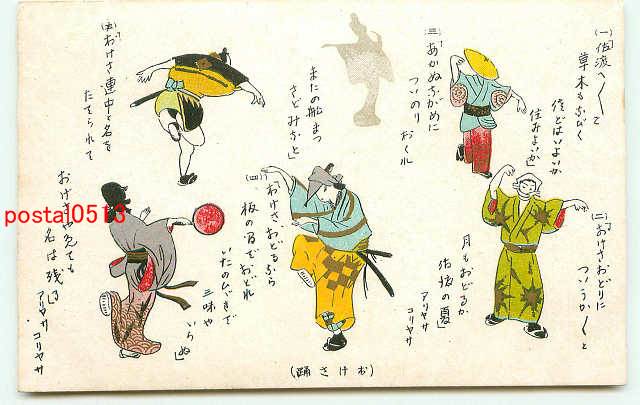 (一)佐渡へ〱と
草木もなびく
佐どはいよいか
住みよいか
(二)おけさおどりに
つい うか〱と
月もおどるか
佐渡の夏
アリヤサ
コリヤサ
(三)あかぬながめに
ついのりおくれ
またの船まつ
さどみなと
(四)おけさおどるなら
板の間でおどれ
いたのひゞきで
三味やいらぬ
(五)おけさ連中と名を
たてられて
おけさやめても
名は残る
アリヤサ
コリヤサ
(おけさ踊)
postal0513